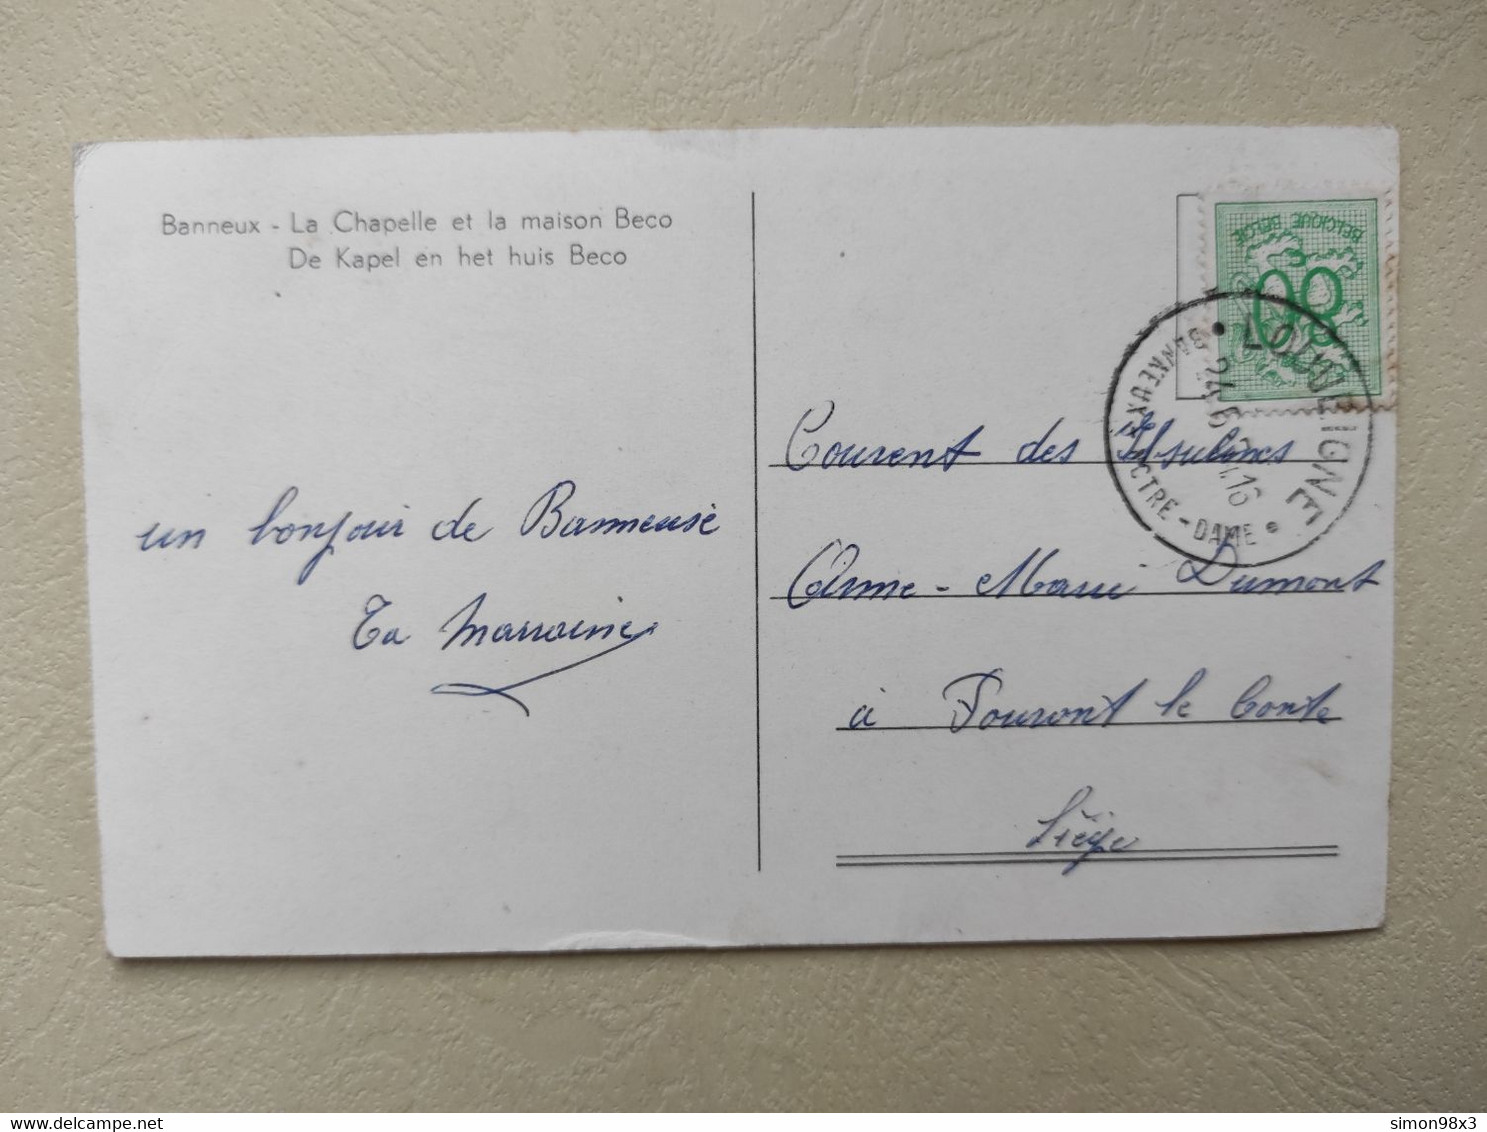 Banneux - La Chapelle et la maison Beco
De Kapel en het huis Beco
un bonjour de Banneuse
Ta Marraine
BELGIQUE BELGIE
80
LOUVEIGNE
BANNEUX NOTRE-DAME
24 6
16
Couvent des Ursulines
Anne-Marie Dumont
à Fouront le Conte
Liège
www.delcampe.net
simon98x3